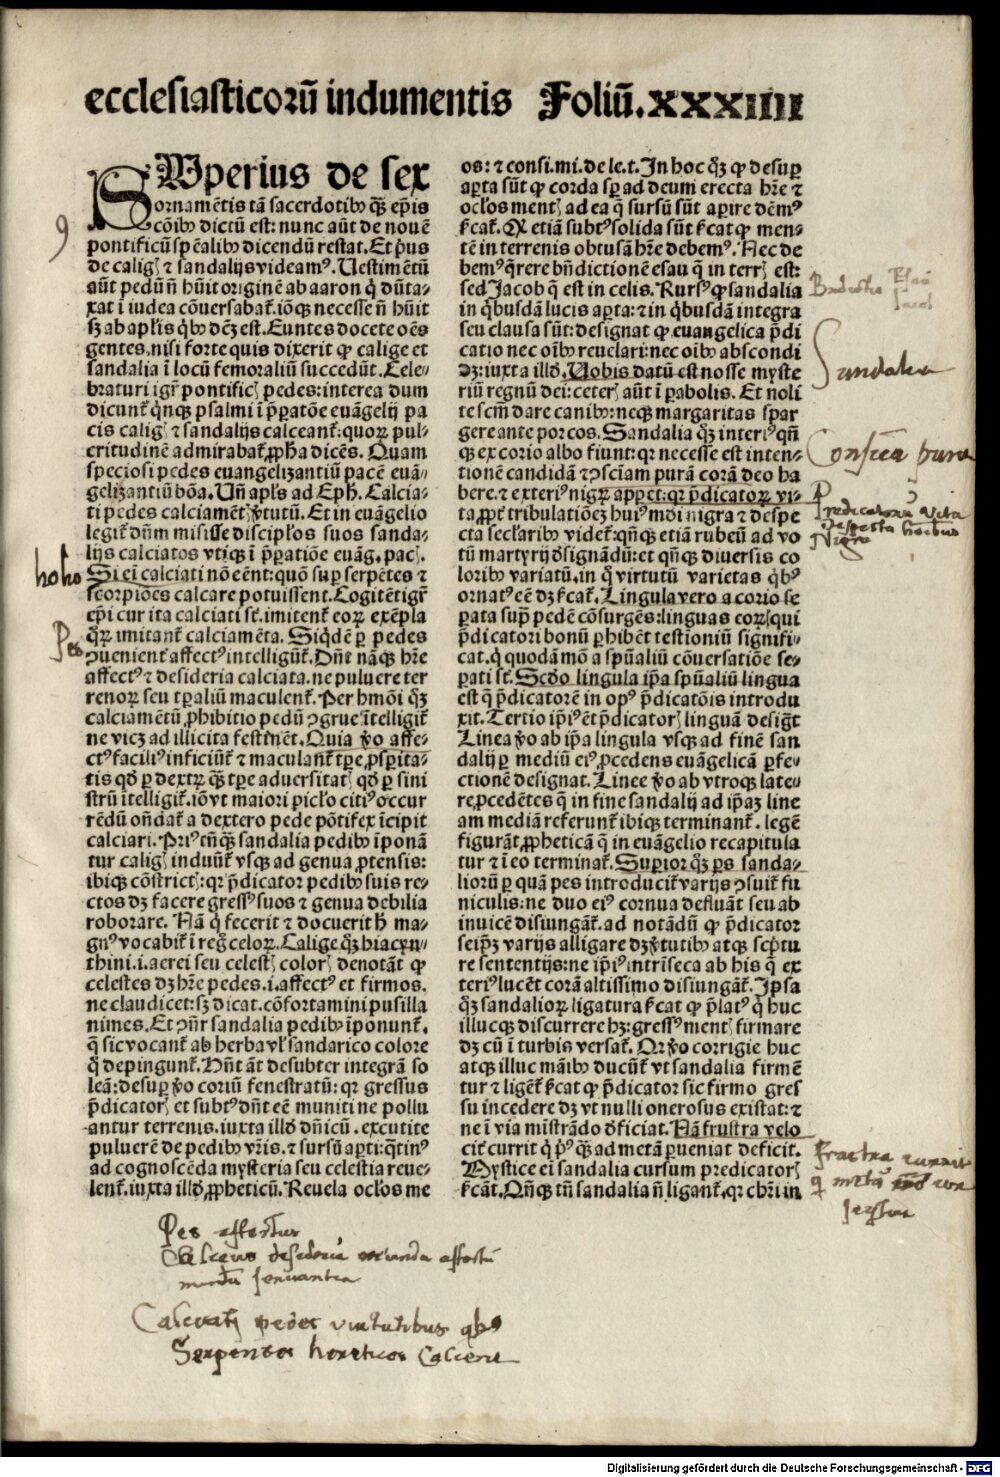 ecclesiasticorū indumentis Foliū. XXXIIII
SUperius de sex
ornamētis tā sacerdotibꝰ qꝫ epīs
cōibꝰ dictū est: nunc aūt de nouē
pontificū spēalibꝰ dicendū restat. Et pͥus
de caligꝭ ⁊ sandalijs videamꝰ. Uestimētū
aūt pedū nō hūit originē ab aaron qͥ dūta⸗
xat ī iudea cōuersabat᷑. iōqꝫ necesse nō hūit
sꝫ ab apl̄is qͥbꝰ dc̄ꝫ est. Euntes docete oēs
gentes. nisi forte quis dixerit ꝙ calige et
sandalia ī locū femoraliū succedūt. Cele⸗
braturi igr̄ pontificꝭ pedes: interea dum
dicunt᷑ qͥnqꝫ psalmi ī p̄paratōe euāgelij pa
cis caligꝭ ⁊ sandalijs calceant᷑: quoꝝ pul⸗
critudinē admirabat᷑ ꝓpha dicēs. Quam
speciosi pedes euangelizantiū pacē euā⸗
gelizantiū bōa. Un̄ apl̄s ad Eph̄. Calcia⸗
ti pedes calciamēt̄ v̓tutū. Et in euāgelio
legit᷑ dn̄m misisse discipl̄os suos sanda⸗
lijs calciatos vtiqꝫ ī p̄paratiōe euāg. pacꝭ.
Si ei calciati nō eēnt: quō suꝑ serpētes ⁊
scorpiōes calcare potuissent. Cogitēt igr̄
ep̄i cur ita calciati st̄. imitent᷑ eoꝝ exēpla
qͦꝝ imitant᷑ calciamēta. Siqͥdē ꝑ pedes
ꝯuenient᷑ affectꝰ intelligūt᷑. Dn̄t nāqꝫ hr̄e
affectꝰ ⁊ desideria calciata. ne puluere ter
renoꝝ seu tꝑaliū maculent᷑. Per hmōi qͦꝫ
calciamētū ꝓhibitio pedū ꝯgrue ītelligit᷑
ne vicꝫ ad illicita festinēt. Quia v̓o affe⸗
ctꝰ faciliꝰ inficiūt᷑ ⁊ maculant᷑ tꝑe ꝓsꝑita⸗
tis qd̄ ꝑ dextꝝ qꝫ tꝑe aduersitatꝭ qd̄ ꝑ sini
strū ītelligit᷑. iōvt maiori picl̄o citiꝰ occur
rēdū on̄dat᷑ a dextero pede pōtifex īcipit
calciari. Priꝰ tn̄qꝫ sandalia pedibꝰ īponā
tur caligꝭ induūt᷑ vsqꝫ ad genua ꝓtensis:
ibiqꝫ cōstrictꝭ: qꝛ p̄dicator pedibꝰ suis re⸗
ctos dꝫ facere gressꝰ suos ⁊ genua debilia
roborare. Nā qͥ fecerit ⁊ docuerit h̓ ma⸗
gnꝰ vocabit᷑ ī reg̓ celoꝝ. Calige qͦꝫ hiacyn⸗
thini. i. aerei seu celestꝭ colorꝭ denotāt ꝙ
celestes dꝫ hr̄e pedes. i. affectꝰ et firmos.
ne claudicet: sꝫ dicat. cōfortamini pusilla
nimes. Et ꝯn̄r sandalia pedibꝰ īponunt᷑.
q̄ sic vocant᷑ ab herba vl̓ sandarico colore
qͦ depingunt᷑. Hn̄t āt desubter integrā so
leā: desuꝑ v̓o coriū fenestratū: qꝛ gressus
p̄dicatorꝭ et subtꝰ dn̄t eē muniti ne pollu
antur terrenis. iuxta illd̄ dn̄icū. excutite
puluerē de pedibꝰ vr̄is. ⁊ sursū aꝑti: qͣtinꝰ
ad cognoscēda mysteria seu celestia reue⸗
lent᷑. iuxta illd̄ ꝓpheticū. Reuela ocl̄os me
os: ⁊ consi. mi. de le. t. In hoc qͦꝫ ꝙ desuꝑ
aꝑta sūt ꝙ corda sꝑ ad deum erecta hr̄e ⁊
ocl̄os mentꝭ ad ea q̄ sursū sūt aꝑire dēmꝰ
s̄cat᷑. Q̛ etiā subtꝰ solida sūt s̄cat᷑ ꝙ men⸗
tē in terrenis obtusā hr̄e debemꝰ. Nec de
bemꝰ q̄rere bn̄dictionē esau q̄ in terrꝭ est:
sed Jacob q̄ est in celis. Rursꝰ ꝙ sandalia
in qͥbusdā lucis aꝑta: ⁊ in qͥbusdā integra
seu clausa sūt: designat ꝙ euangelica p̄di
catio nec oībꝰ reuelari: nec oībꝰ abscondi
dꝫ: iuxta illd̄. Uobis datū est nosse myste
riū regnū dei: ceterꝭ aūt ī ꝑabolis. Et noli
te scm̄ dare canibꝰ: neqꝫ margaritas spar
gere ante porcos. Sandalia qͦꝫ interiꝰ qn̄
qꝫ ex corio albo fiunt: qꝛ necesse est inten⸗
tionē candidā ⁊ ꝯsciam purā corā deo ha
bere. ⁊ exteriꝰ nigꝝ apꝑet: qꝛ p̄dicatoꝝ vi⸗
ta, ꝓpt̓ tribulatiōeꝫ huiꝰ mōi nigra ⁊ despe
cta secl̄aribꝰ videt᷑: qn̄qꝫ etiā rubeū ad vo
tū martyrij dsignādū: et qn̄qꝫ diuersis co
loribꝰ variatū. in qͦ virtutū varietas qͥbꝰ
ornatꝰ eē dꝫ s̄cat᷑. Lingula vero a corio se
ꝑata supͣ pedē cōsurgēs: linguas eoꝝ qui
p̄dicatori bonū ꝑhibēt testioniū signifi⸗
cat. qͥ quodā mō a spūaliū cōuersatiōe se⸗
ꝑati st̄. Scd̄o lingula ip̄a spūaliū lingua
est q̄ p̄dicatorē in opꝰ p̄dicatōis introdu
xit. Tertio ip̄iꝰ ēt p̄dicatorꝭ linguā desigt̄
Linea v̓o ab ip̄a lingula vsqꝫ ad finē san
dalij ꝑ mediū eiꝰ ꝓcedens euāgelicā ꝑfe⸗
ctionē designat. Linee v̓o ab vtroqꝫ late⸗
re, ꝓcedētes q̄ in fine sandalij ad ip̄aꝫ line
am mediā referunt᷑ ibiqꝫ terminant᷑. legē
figurāt ꝓpheticā q̄ in euāgelio recapitula
tur ⁊ ī eo terminat᷑. Superior qͦꝫ ꝑs sanda⸗
lioꝝ ꝑ quā pes introducit᷑ varijs ꝯsuit᷑ fu
niculis: ne duo eiꝰ cornua defluāt seu ab
inuicē disiungāt᷑. ad notādū ꝙ p̄dicator
seip̄ꝫ varijs alligare dꝫ v̓tutibꝰ atqꝫ scp̄tu
re sententijs: ne ip̄iꝰ intrīseca ab his q̄ ex
teriꝰ lucēt corā altissimo disiungāt᷑. Ip̄sa
qͦꝫ sandalioꝝ ligatura s̄cat ꝙ p̄latꝰ qͥ huc
illucqꝫ discurrere hꝫ: gressꝰ mentꝭ firmare
dꝫ cū ī turbis versat᷑. Qꝛ v̓o corrigie huc
atqꝫ illuc manibꝰ ducūt᷑ vt sandalia firmē
tur ⁊ ligēt᷑ s̄cat ꝙ p̄dicator sic firmo gres
su incedere dꝫ vt nulli onerosus existat: ⁊
ne ī via mīstrādo deficiat. Nā frustra velo
cit᷑ currit qͥ pͥꝰ qꝫ ad metā ꝑueniat deficit.
Mystice ei sandalia cursum predicatorꝭ
s̄cāt. Qn̄qꝫ tn̄ sandalia nō ligant᷑. qꝛ chr̄i in
9
hoho
Pes
Bn̄dictio Esau
Jacob
Sandalia
Consciēa pura
Predicatorū vita
despecta hoībus
Nigra
frustra currit
Pes affectus
Calceus desideria
Calceati pedes virtutibus qͥbꝰ
Serpentes hereticos Calcent
Digitalisierung gefördert durch die Deutsche Forschungsgemeinschaft - DFG